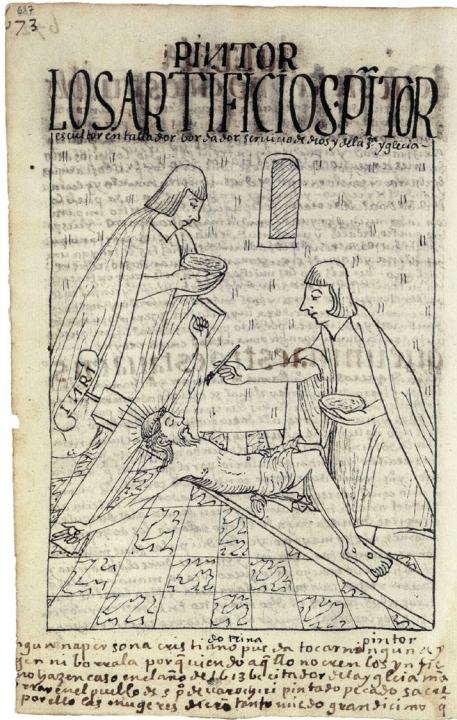 687
673
PINTOR
LOS ARTIFICIOS PĪTOR
escultor entallador bordador servicio de dios y de la s.ta yglecia
INRI
dotrina
pintor
persona cristiano pueda tocar ninguna
ni borralla porq̄ uiendo aq̄llo no cren los ynfie
hazen caso en el año de 1613 becitador de la yglecia
en el pueblo de s. p.o de uarochiri pintado pecado sacra
por ello las mugeres tanto miedo grandicimo q̄